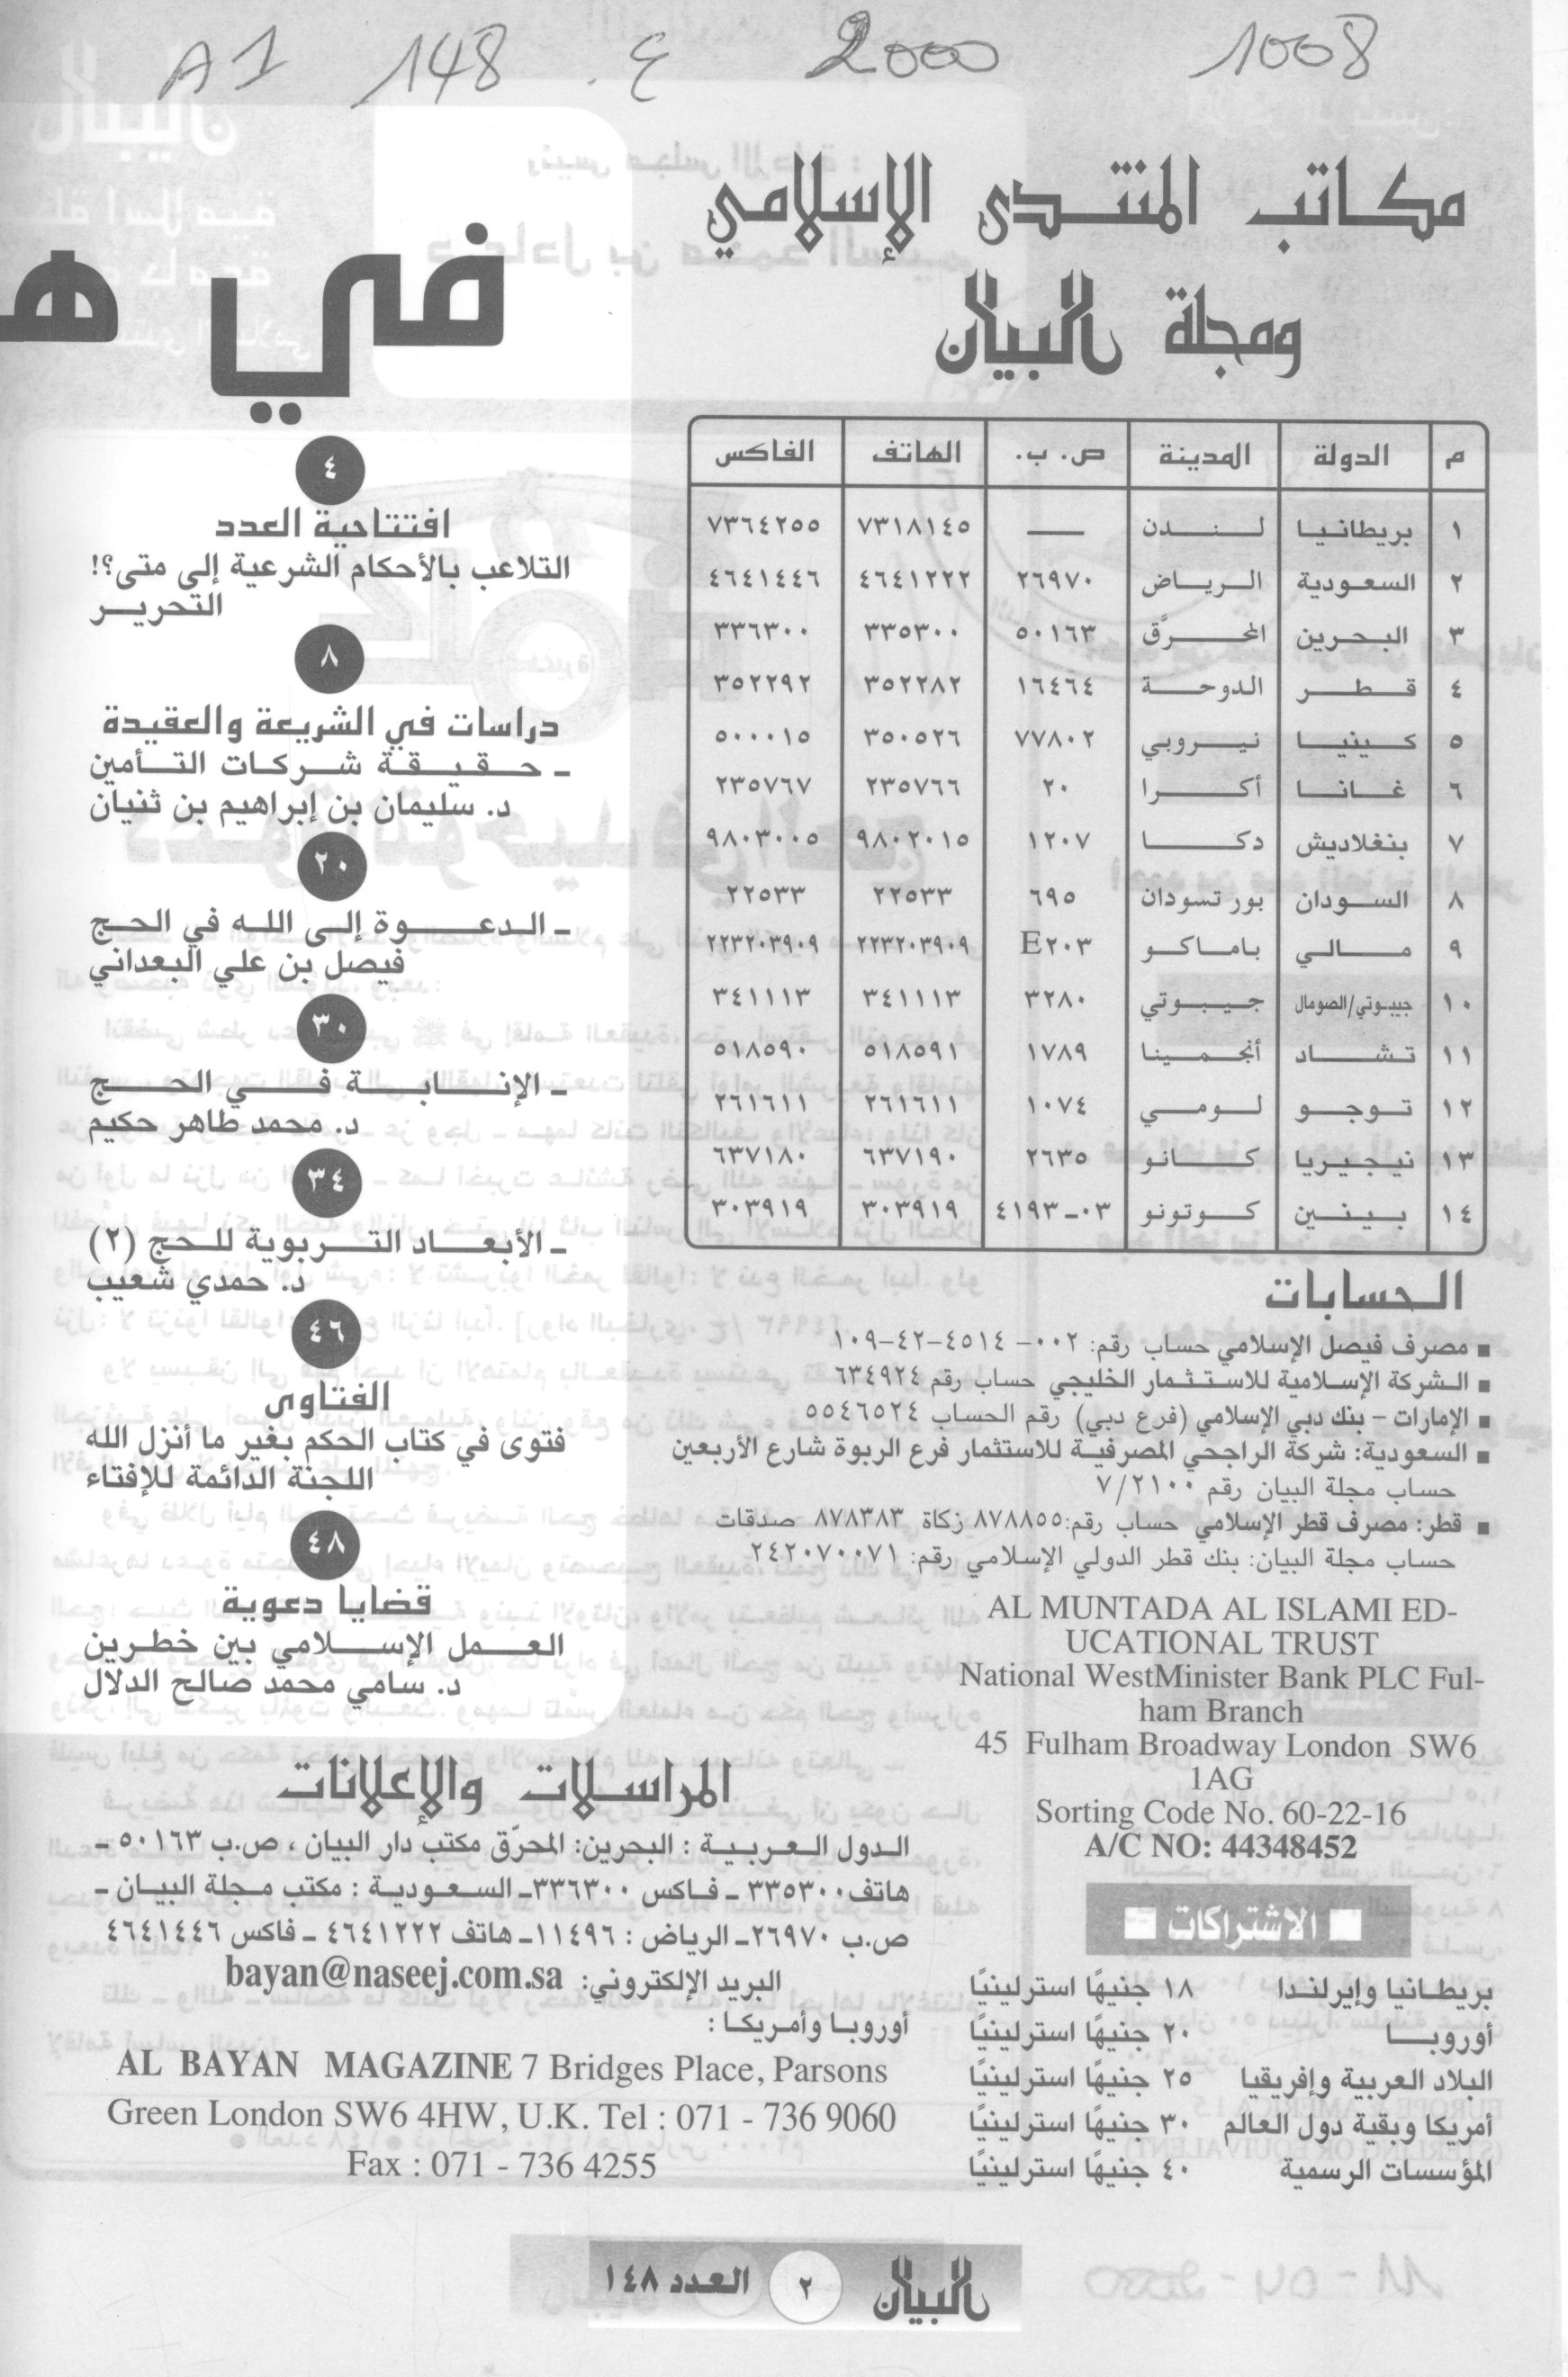 A1 148 .ع 2000 1008
مكاتب المنتدى الإسلامي
ومجلة البيان
م الدولة المدينة ص. ب. الهاتف الفاكس
١ بريطانيا لندن — ٧٣١٨١٤٥ ٧٣٦٤٢٥٥
٢ السعودية الرياض ٢٦٩٧٠ ٤٦٤١٢٢٢ ٤٦٤١٤٤٦
٣ البحرين المحرَّق ٥٠١٦٣ ٣٣٥٣٠٠ ٣٣٦٣٠٠
٤ قطر الدوحة ١٦٤٦٤ ٣٥٢٢٨٢ ٣٥٢٢٩٢
٥ كينيا نيروبي ٧٧٨٠٢ ٣٥٠٥٢٦ ٥٠٠٠١٥
٦ غانا أكرا ٢٠ ٢٣٥٧٦٦ ٢٣٥٧٦٧
٧ بنغلاديش دكا ١٢٠٧ ٩٨٠٢٠١٥ ٩٨٠٣٠٠٥
٨ السودان بور تسودان ٦٩٥ ٢٢٥٣٣ ٢٢٥٣٣
٩ مالي باماكو E٢٠٣ ٢٢٣٢٠٣٩٠٩ ٢٢٣٢٠٣٩٠٩
١٠ جيبوتي/الصومال جيبوتي ٣٢٨٠ ٣٤١١١٣ ٣٤١١١٣
١١ تشاد أنجمينا ١٧٨٩ ٥١٨٥٩١ ٥١٨٥٩٠
١٢ توجو لومي ١٠٧٤ ٢٦١٦١١ ٢٦١٦١١
١٣ نيجيريا كانو ٢٦٣٥ ٦٣٧١٩٠ ٦٣٧١٨٠
١٤ بينين كوتونو ٠٣-٤١٩٣ ٣٠٣٩١٩ ٣٠٣٩١٩
الحسابات
■ مصرف فيصل الإسلامي حساب رقم: ٠٠٢-٤٥١٤-٤٢-١٠٩
■ الشركة الإسلامية للاستثمار الخليجي حساب رقم ٦٣٤٩٢٤
■ الإمارات - بنك دبي الإسلامي (فرع دبي) رقم الحساب ٥٥٤٦٥٢٤
■ السعودية: شركة الراجحي المصرفية للاستثمار فرع الربوة شارع الأربعين
حساب مجلة البيان رقم ٧/٢١٠٠
■ قطر: مصرف قطر الإسلامي حساب رقم:٨٧٨٨٥٥ زكاة ٨٧٨٣٨٣ صدقات
حساب مجلة البيان: بنك قطر الدولي الإسلامي رقم: ٢٤٢٠٧٠٠٧١
AL MUNTADA AL ISLAMI ED-
UCATIONAL TRUST
National WestMinister Bank PLC Ful-
ham Branch
45 Fulham Broadway London SW6
1AG
Sorting Code No. 60-22-16
A/C NO: 44348452
■ الاشتراكات ■
بريطانيا وإيرلندا ١٨ جنيهًا استرلينيًا
أوروبا ٢٠ جنيهًا استرلينيًا
البلاد العربية وإفريقيا ٢٥ جنيهًا استرلينيًا
أمريكا وبقية دول العالم ٣٠ جنيهًا استرلينيًا
المؤسسات الرسمية ٤٠ جنيهًا استرلينيًا
في ه
٤
افتتاحية العدد
التلاعب بالأحكام الشرعية إلى متى؟!
التحرير
٨
دراسات في الشريعة والعقيدة
ـ حقيقة شركات التأمين
د. سليمان بن إبراهيم بن ثنيان
٢٠
ـ الدعوة إلى الله في الحج
فيصل بن علي البعداني
٣٠
ـ الإنابة في الحج
د. محمد طاهر حكيم
٣٤
ـ الأبعاد التربوية للحج (٢)
د. حمدي شعيب
٤٦
الفتاوى
فتوى في كتاب الحكم بغير ما أنزل الله
اللجنة الدائمة للإفتاء
٤٨
قضايا دعوية
العمل الإسلامي بين خطرين
د. سامي محمد صالح الدلال
المراسلات والإعلانات
الدول العربية : البحرين: المحرّق مكتب دار البيان ، ص.ب ٥٠١٦٣ ـ
هاتف٣٣٥٣٠٠ ـ فاكس ٣٣٦٣٠٠ـ السعودية : مكتب مجلة البيان ـ
ص.ب ٢٦٩٧٠ـ الرياض : ١١٤٩٦ـ هاتف ٤٦٤١٢٢٢ ـ فاكس ٤٦٤١٤٤٦
البريد الإلكتروني: bayan@naseej.com.sa
أوروبا وأمريكا :
AL BAYAN MAGAZINE 7 Bridges Place, Parsons
Green London SW6 4HW, U.K. Tel : 071 - 736 9060
Fax : 071 - 736 4255
البيان ٢ العدد ١٤٨